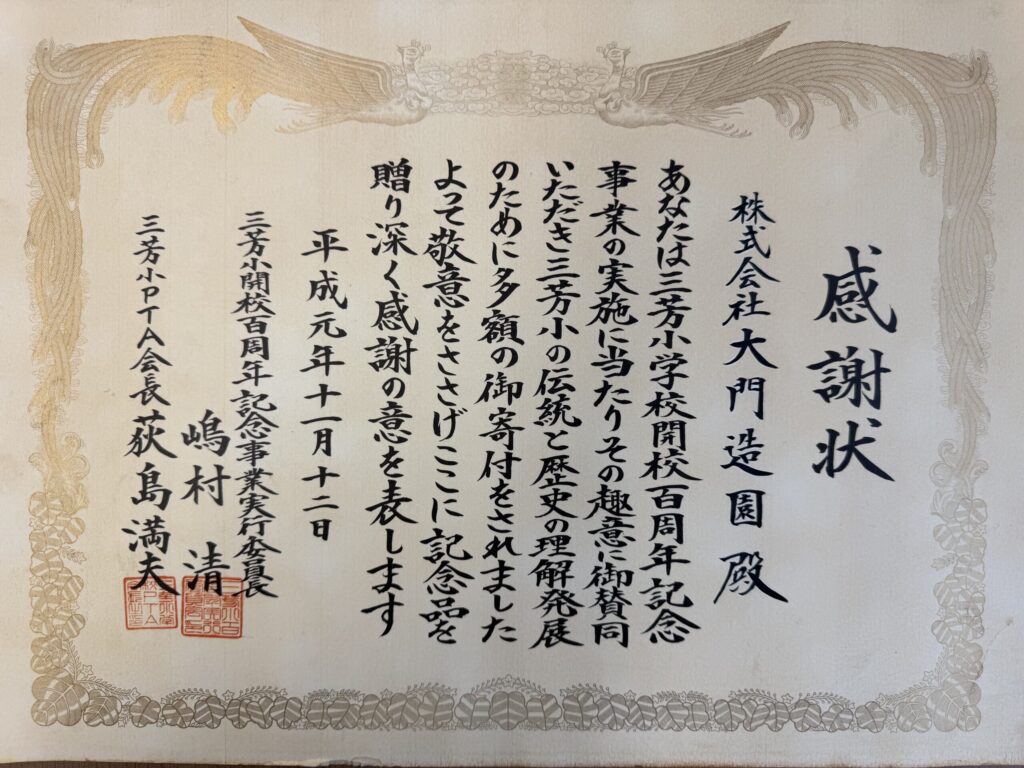 感謝状
株式会社大門造園殿
あなたは三芳小学校開校百周年記念
事業の実施に当たりその趣意に御賛同
いただき三芳小の伝統と歴史の理解発展
のために多額の御寄付をされました
よって敬意をささげここに記念品を
贈り深く感謝の意を表します
平成元年十一月十二日
三芳小開校百周年記念事業実行委員長
嶋村清
三芳小PTA会長荻島満夫